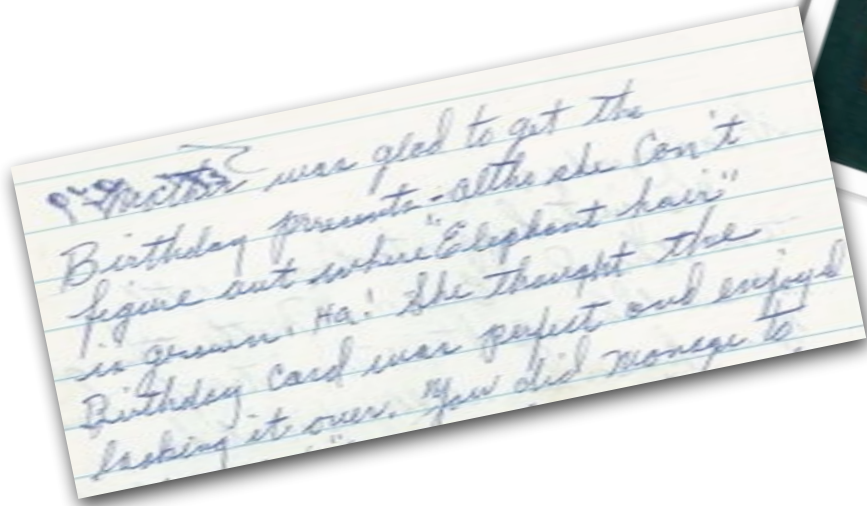 Mother was glad to get the
Birthday presents - altho she Can't
figure out where "Elephant hair"
is grown. Ha! She thought the
Birthday Card was perfect and enjoyed
looking it over. You did manage to